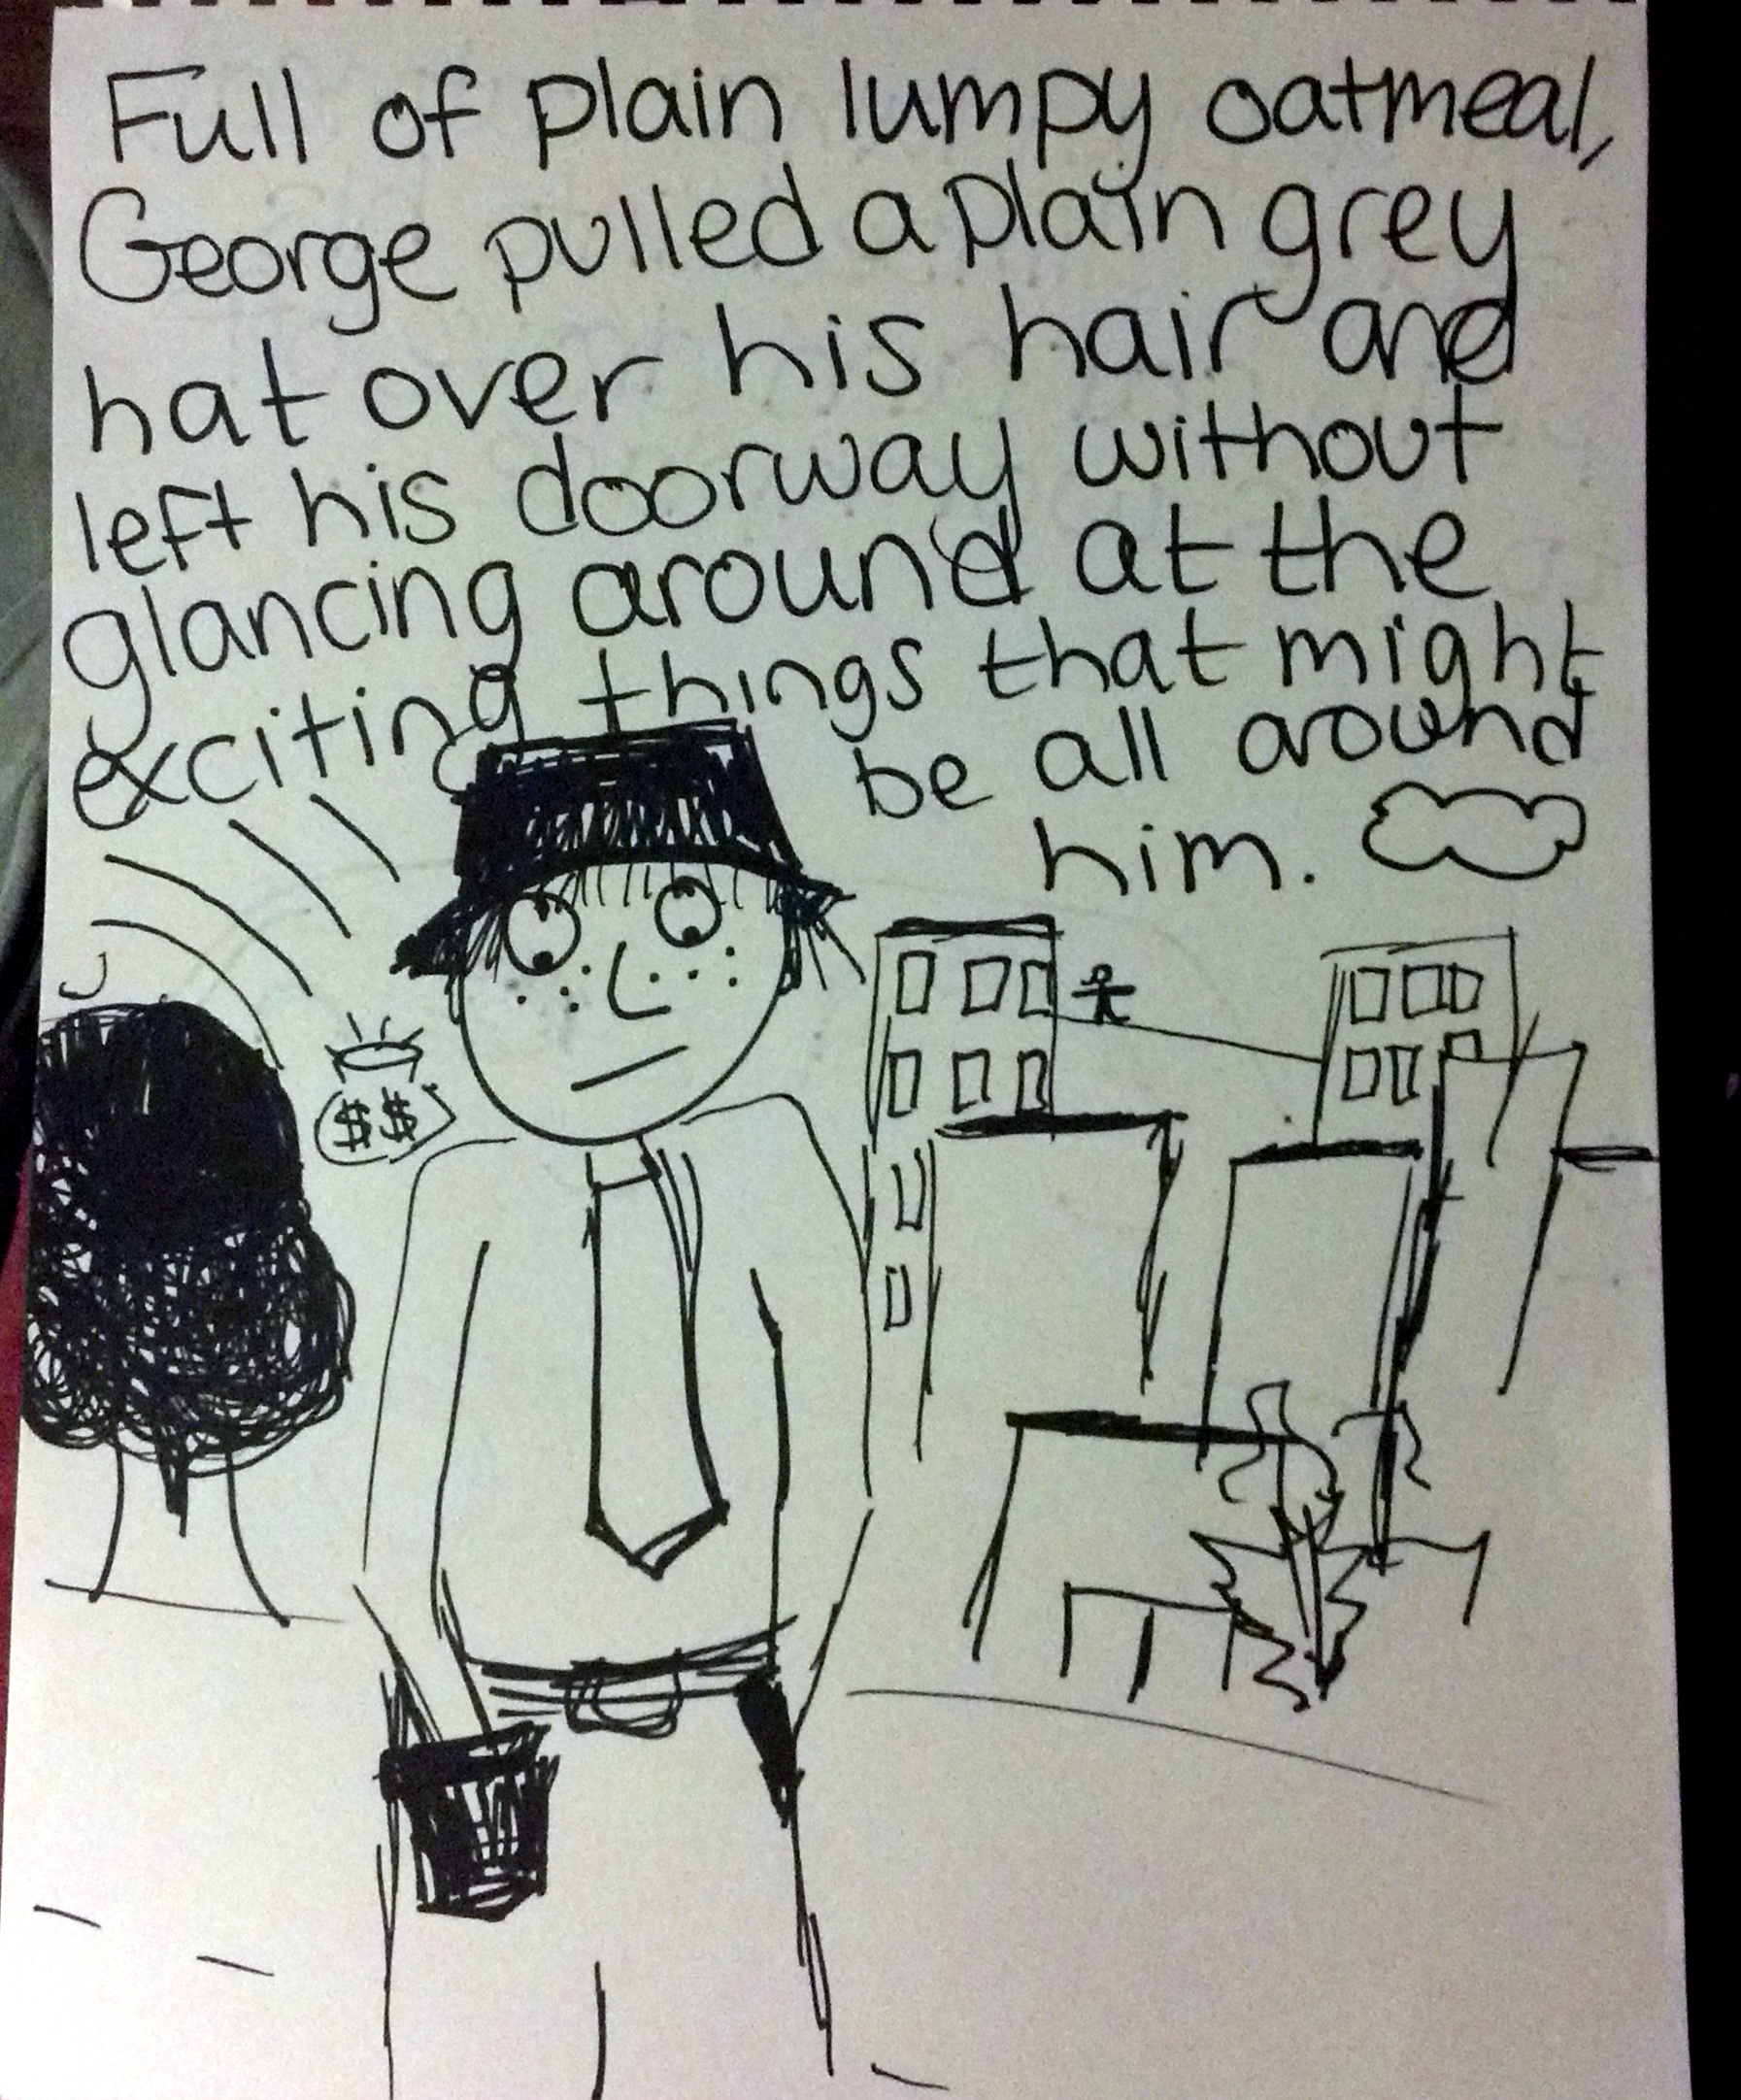 Full of plain lumpy oatmeal,
George pulled a plain grey
hat over his hair and
left his doorway without
glancing around at the
exciting things that might
be all around
him.
$$